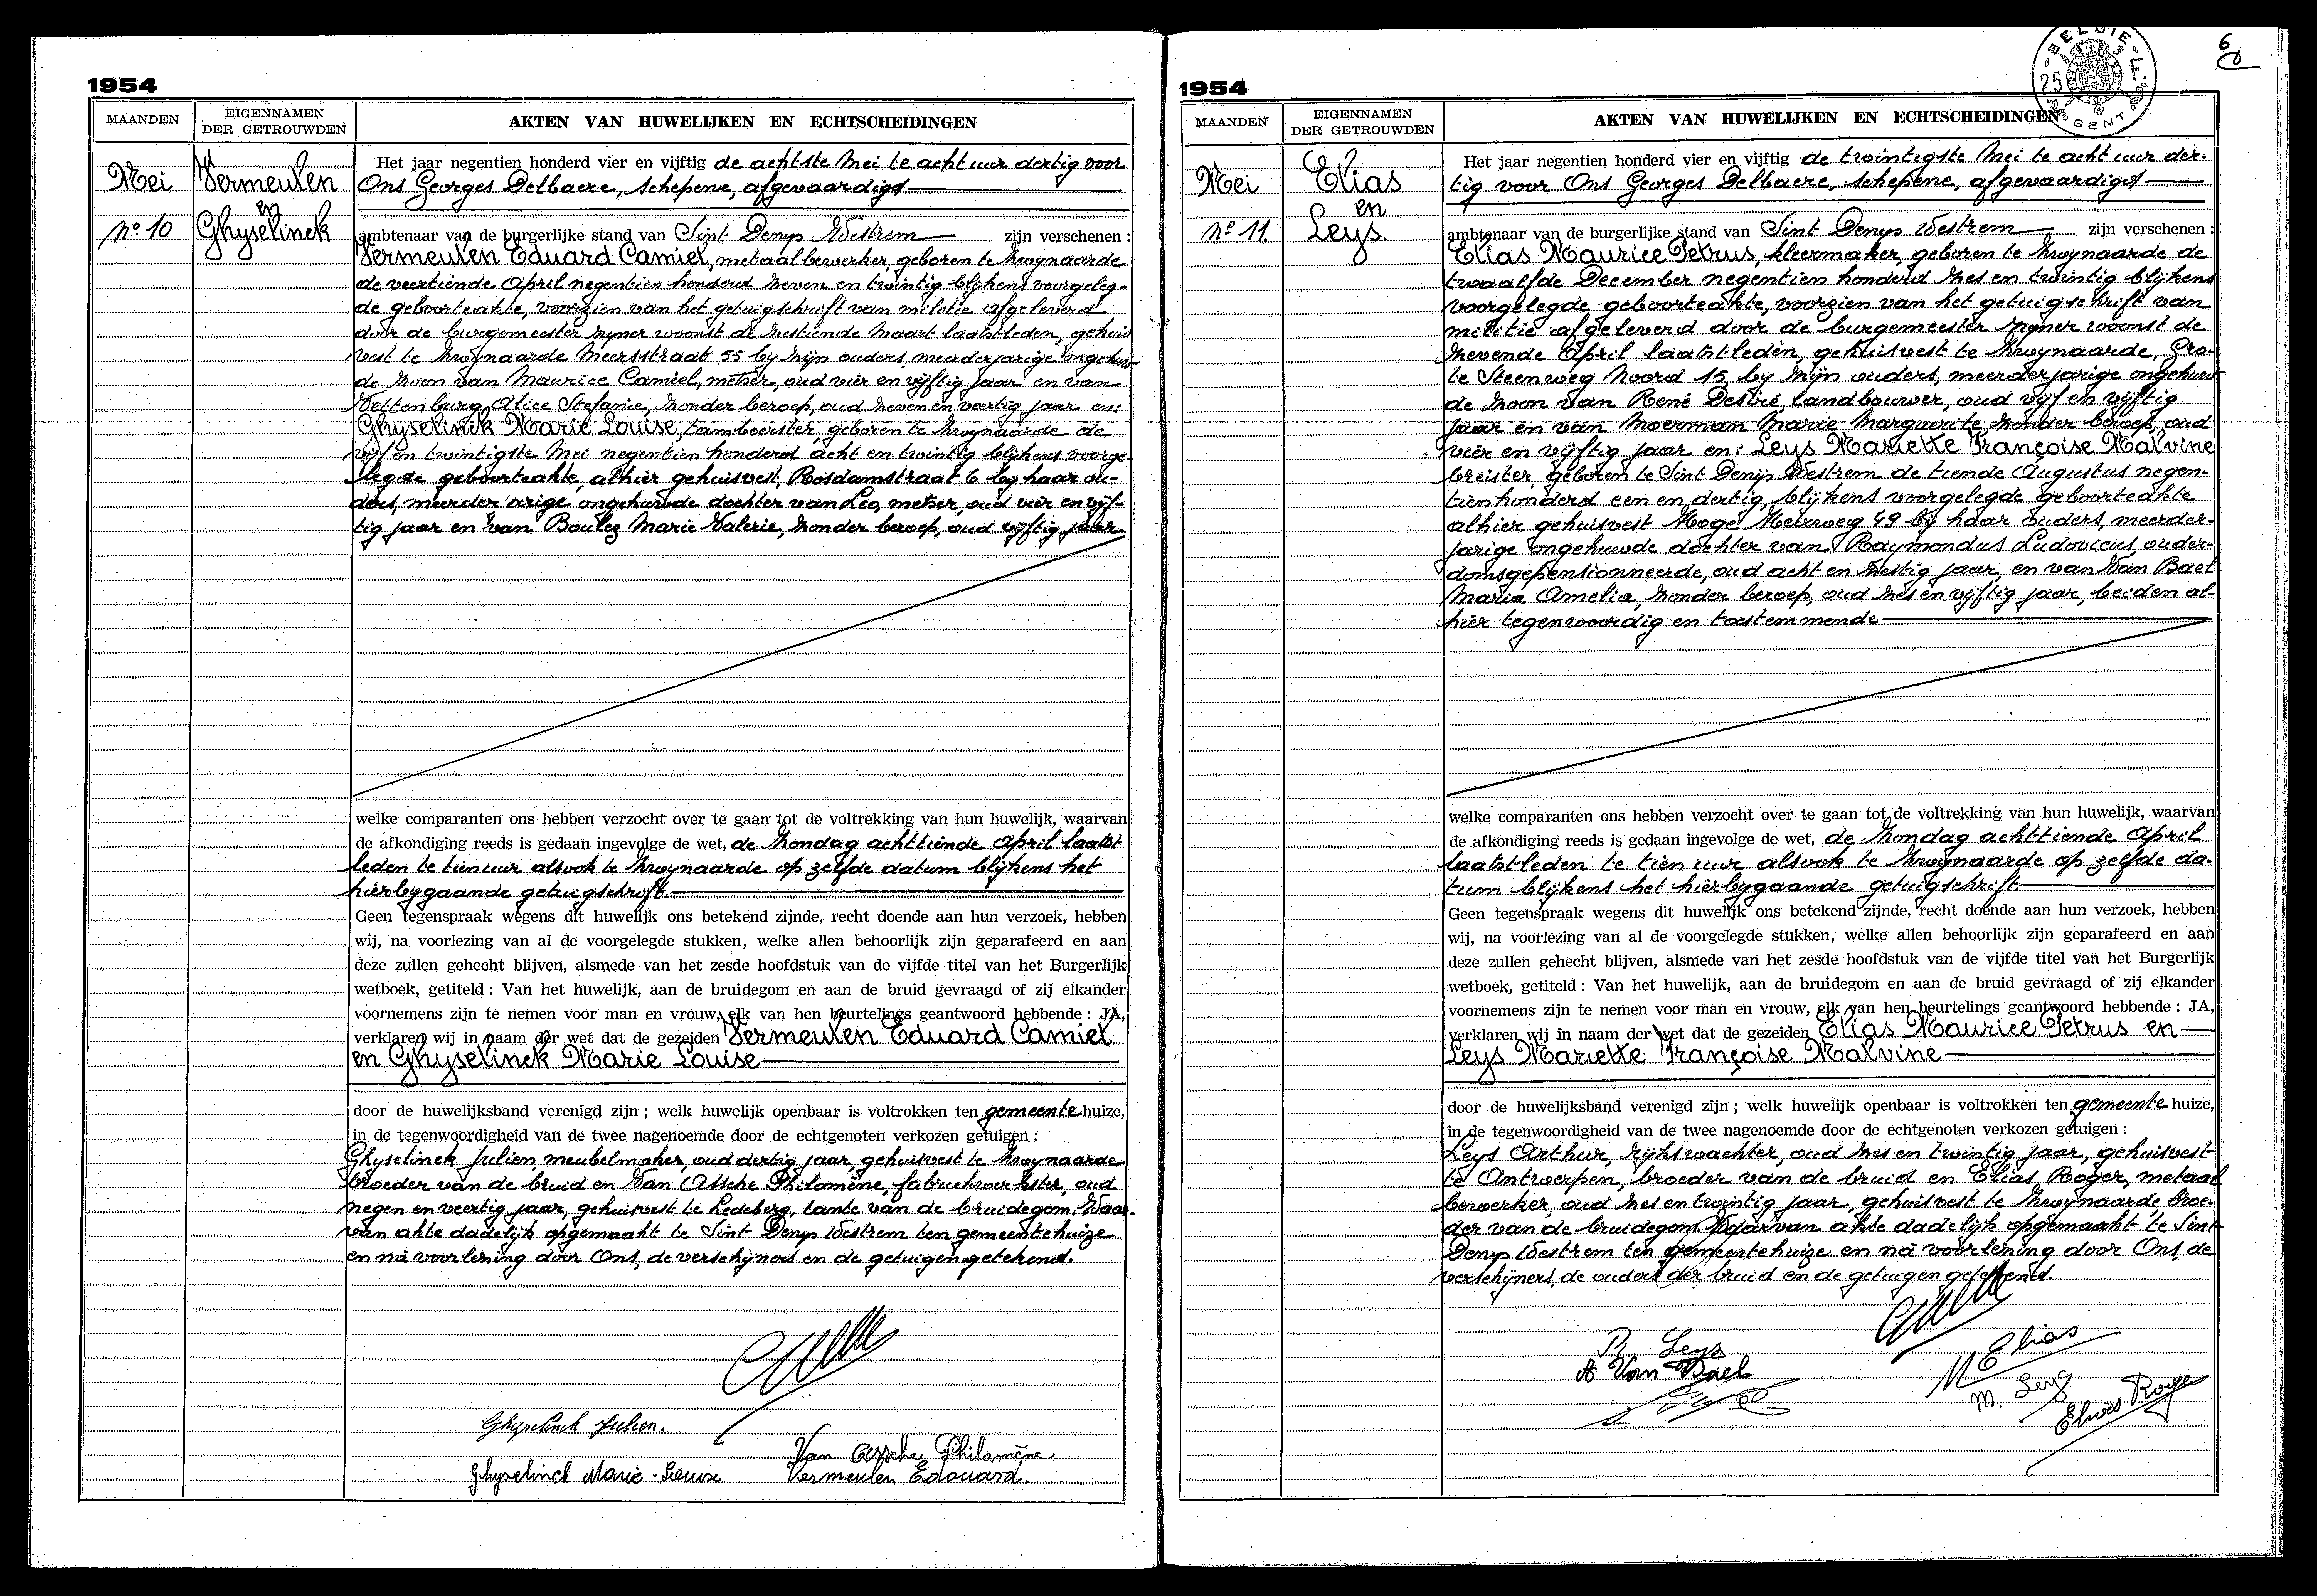 1954
MAANDEN
EIGENNAMEN
DER GETROUWDEN
AKTEN VAN HUWELIJKEN EN ECHTSCHEIDINGEN
Mei
Nº 10
Vermeulen
en
Ghyselinck
Het jaar negentien honderd vier en vijftig de achtste Mei te acht uur dertig voor
Ons Georges Delbaere, schepene, afgevaardigd
ambtenaar van de burgerlijke stand van Sint Denys Westrem zijn verschenen :
Vermeulen Eduard Camiel, metaalbewerker, geboren te Zwynaarde
de veertiende April negentien honderd zeven en twintig blijkens voorgeleg-
de geboorteakte, voorzien van het getuigschrift van militie afgeleverd
door de burgemeester zyner woonst de zestiende Maart laatstleden, gehuis
vest te Zwynaarde Meersstraat 55 by zijn ouders, meerderjarige ongehuw-
de zoon van Maurice Camiel, metser, oud vier en vijftig jaar en van
Vettenburg, Alice Stefanie, zonder beroep, oud zeven en veertig jaar en:
Ghyselinck Marie Louise, tamboerster, geboren te Zwynaarde de
vijf en twintigste Mei negentien honderd acht en twintig blijkens voorge-
legde geboorteakte, alhier gehuisvest, Rosdamstraat 6 by haar ou-
ders, meerder arige ongehuwde dochter van Leo, metser, oud vier en vijf-
tig jaar en van Boulez Marie Valerie, zonder beroep, oud vijftig jaar
welke comparanten ons hebben verzocht over te gaan tot de voltrekking van hun huwelijk, waarvan
de afkondiging reeds is gedaan ingevolge de wet, de zondag achttiende April laatst
leden te tien uur alsook te Zwynaarde op zelfde datum blijkens het
hierbygaande getuigschrift.
Geen tegenspraak wegens dit huwelijk ons betekend zijnde, recht doende aan hun verzoek, hebben
wij, na voorlezing van al de voorgelegde stukken, welke allen behoorlijk zijn geparafeerd en aan
deze zullen gehecht blijven, alsmede van het zesde hoofdstuk van de vijfde titel van het Burgerlijk
wetboek, getiteld : Van het huwelijk, aan de bruidegom en aan de bruid gevraagd of zij elkander
voornemens zijn te nemen voor man en vrouw, elk van hen beurtelings geantwoord hebbende : JA,
verklaren wij in naam der wet dat de gezeiden Vermeulen Eduard Camiel
en Ghyselinck Marie Louise
door de huwelijksband verenigd zijn ; welk huwelijk openbaar is voltrokken ten gemeente huize,
in de tegenwoordigheid van de twee nagenoemde door de echtgenoten verkozen getuigen :
Ghyselinck Julien, meubelmaker, oud dertig jaar, gehuisvest te Zwynaarde
broeder van de bruid en Van Assche Philomène, fabriekwerkster, oud
negen en veertig jaar, gehuisvest te Ledeberg, tante van de bruidegom. Waar-
van akte dadelijk opgemaakt te Sint Denys Westrem ten gemeentehuize
en na voorlezing door Ons, de verschijners en de getuigen getekend.
Ghyselinck Julien.
Van Assche Philomène
Ghyselinck Marie-Louise Vermeulen Edouard.
1954
BELGIE
25 F.
GENT
6
MAANDEN
EIGENNAMEN
DER GETROUWDEN
AKTEN VAN HUWELIJKEN EN ECHTSCHEIDINGEN
Mei
Nº 11.
Elias
en
Leys.
Het jaar negentien honderd vier en vijftig de twintigste Mei te acht uur der-
tig voor Ons Georges Delbaere, schepene, afgevaardigd
ambtenaar van de burgerlijke stand van Sint Denys Westrem zijn verschenen :
Elias Maurice Petrus, kleermaker, geboren te Zwynaarde de
twaalfde December negentien honderd zes en twintig blijkens
voorgelegde geboorteakte, voorzien van het getuigschrift van
militie afgeleverd door de burgemeester zyner woonst de
zevende April laatstleden, gehuisvest te Zwynaarde, Gro-
te Steenweg Noord 15, by zijn ouders, meerderjarige ongehuw-
de zoon van René Desiré, landbouwer, oud vijf en vijftig
jaar en van Moerman Marie Marguerite zonder beroep, oud
vier en vijftig jaar en: Leys Mariette Françoise Malvine
breister, geboren te Sint Denijs Westrem de tiende Augustus negen-
tien honderd een en dertig, blijkens voorgelegde geboorteakte
alhier gehuisvest Hoge Heirweg 49 bij haar ouders, meerder-
jarige ongehuwde dochter van Raymondus Ludovicus, ouder-
domsgepensionneerde, oud acht en zestig jaar, en van Van Bael
Maria Amelia, zonder beroep, oud zes en vijftig jaar, beiden al-
hier tegenwoordig en toestemmende
welke comparanten ons hebben verzocht over te gaan tot de voltrekking van hun huwelijk, waarvan
de afkondiging reeds is gedaan ingevolge de wet, de zondag achttiende April
laatstleden te tien uur alsook te Zwynaarde op zelfde da-
tum blijkens het hierbygaande getuigschrift
Geen tegenspraak wegens dit huwelijk ons betekend zijnde, recht doende aan hun verzoek, hebben
wij, na voorlezing van al de voorgelegde stukken, welke allen behoorlijk zijn geparafeerd en aan
deze zullen gehecht blijven, alsmede van het zesde hoofdstuk van de vijfde titel van het Burgerlijk
wetboek, getiteld : Van het huwelijk, aan de bruidegom en aan de bruid gevraagd of zij elkander
voornemens zijn te nemen voor man en vrouw, elk van hen beurtelings geantwoord hebbende : JA,
verklaren wij in naam der wet dat de gezeiden Elias Maurice Petrus en
Leys Mariette Françoise Malvine
door de huwelijksband verenigd zijn ; welk huwelijk openbaar is voltrokken ten gemeente huize,
in de tegenwoordigheid van de twee nagenoemde door de echtgenoten verkozen getuigen :
Leys Arthur, Rijkswachter, oud zes en twintig jaar, gehuisvest
te Antwerpen, broeder van de bruid en Elias, Roger, metaal
bewerker, oud zes en twintig jaar, gehuisvest te Zwynaarde broe-
der van de bruidegom. Waarvan akte dadelijk opgemaakt te Sint
Denys Westrem ten gemeentehuize en na voorlezing door Ons, de
verschijners, de ouders der bruid en de getuigen getekend.
R. Leys
A Van Bael
M Elias
M. Leys
Elias Roger